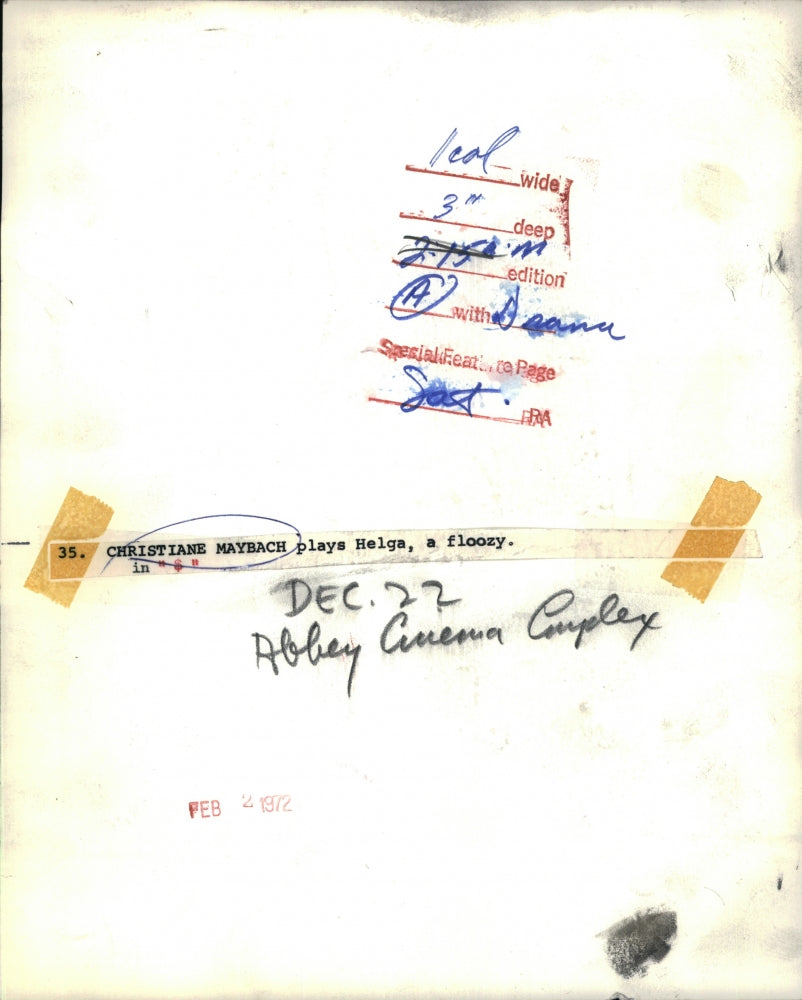 1 col wide
3" deep
2:15 edition
A with
Special Feature Page
Sat. RA
35. CHRISTIANE MAYBACH plays Helga, a floozy.
in "$"
DEC. 22
Abbey Cinema Complex
FEB 2 1972